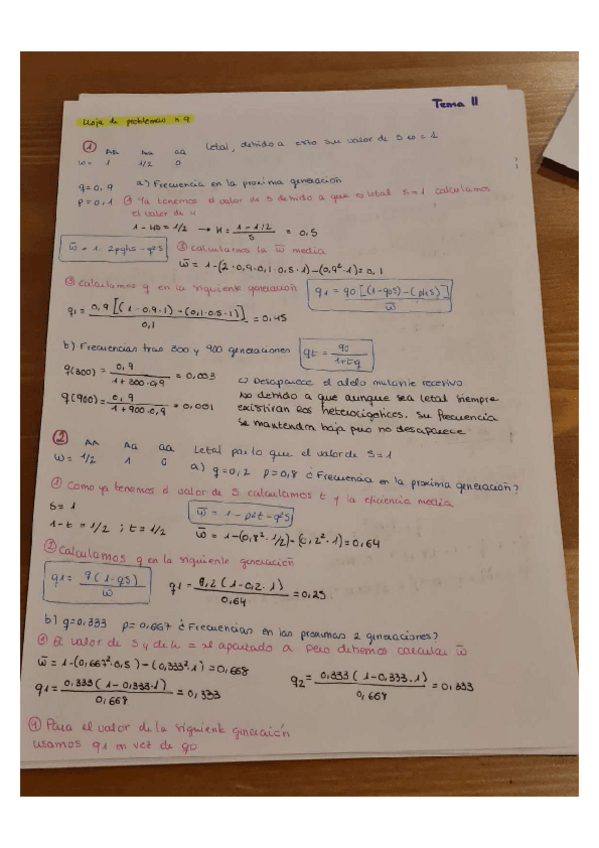 Tema 11
Hoja de problemas n 9
① AA Aa aa Letal, debido a esto su valor de s es = 1
w = 1 1/2 0
q=0,9 a) Frecuencia en la proxima generación
p=0,1 ① Ya tenemos el valor de s debido a que es letal s=1 calculamos
el valor de h
1-hs = 1/2 → h = (1-1/2)/s = 0,5
w̄ = 1-2pqhs-q²s ② calculamos la w̄ media
w̄ = 1-(2·0,9·0,1·0,5·1)-(0,9²·1)=0,1
③ calculamos q en la siguiente generación q1 = q0[(1-q0s)-(phs)]/w̄
q1 = 0,9[(1-0,9·1)-(0,1·0,5·1)]/0,1 = 0,45
b) Frecuencias tras 300 y 900 generaciones qt = q0/1+tq
q(300) = 0,9/1+300·0,9 = 0,003 c) Desaparece el alelo mutante recesivo
q(900) = 0,9/1+900·0,9 = 0,001 No debido a que aunque sea letal siempre
existiran los heterocigoticos. Su frecuencia
se mantendra baja pero no desaparece
② AA Aa aa Letal por lo que el valor de s = 1
w = 1/2 1 0 a) q=0,2 p=0,8 ¿Frecuencia en la proxima generación?
① Como ya tenemos el valor de s calculamos t y la eficiencia media
s = 1 w̄ = 1-p²t-q²s
1-t = 1/2 ; t = 1/2 w̄ = 1-(0,8²·1/2)-(0,2²·1)=0,64
② Calculamos q en la siguiente generación
q1 = q(1-qs)/w̄ q1 = 0,2(1-0,2·1)/0,64 = 0,25
b) q=0,333 p=0,667 ¿Frecuencias en las proximas 2 generaciones?
① El valor de s y de = al apartado a pero debemos calcular w̄
w̄ = 1-(0,667²·0,5)-(0,333²·1)=0,668
q1 = 0,333(1-0,333·1)/0,668 = 0,333 q2 = 0,333(1-0,333·1)/0,668 = 0,333
④ Para el valor de la siguiente generación
usamos q1 en vez de q0